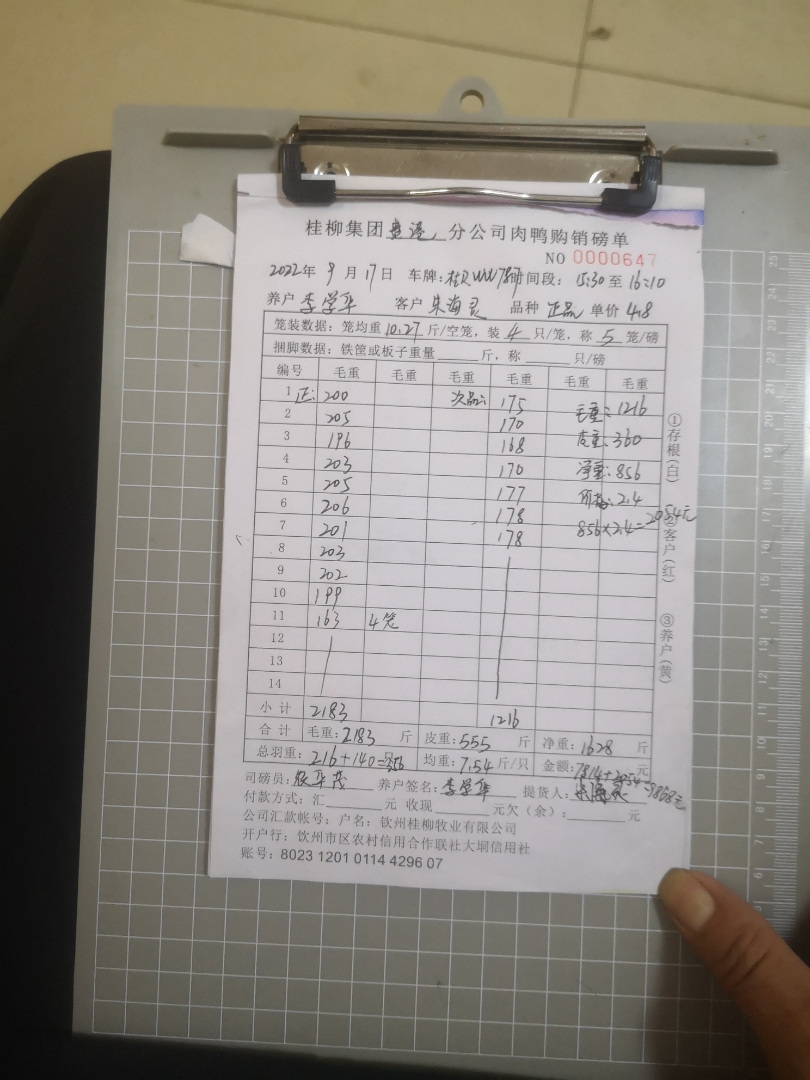 桂柳集团 分公司肉鸭购销磅单
NO 0000647
2022年 9 月 17 日 车牌: 时间段: 15:30 至 16:10
养户 李学华 客户 朱海灵 品种 正品 单价 4.8
笼装数据: 笼均重 10.27 斤/空笼, 装 4 只/笼, 称 5 笼/磅
捆脚数据: 铁筐或板子重量 斤, 称 只/磅
编号 毛重 毛重 毛重 毛重 毛重 毛重
1 正: 200 次品: 175 毛重: 1216
2 205 170 皮重: 360
3 196 168 净重: 856
4 203 170 价格: 2.4
5 205 177 856×2.4=2054元
6 206 178
7 201 178
8 203
9 202
10 199
11 163 4笼
12
13
14
小计 2183 1216
合计 毛重: 2183 斤 皮重: 555 斤 净重: 1628 斤
总羽重: 216+140=356 只 均重: 7.54 斤/只 金额: 7814+2054=9868元 元
司磅员: 养户签名: 李学华 提货人: 朱海灵
付款方式: 汇 元 收现 元欠(余): 元
公司汇款帐号: 户名: 钦州桂柳牧业有限公司
开户行: 钦州市区农村信用合作联社大垌信用社
账号: 8023 1201 0114 4296 07
①存根(白)
②客户(红)
③养户(黄)